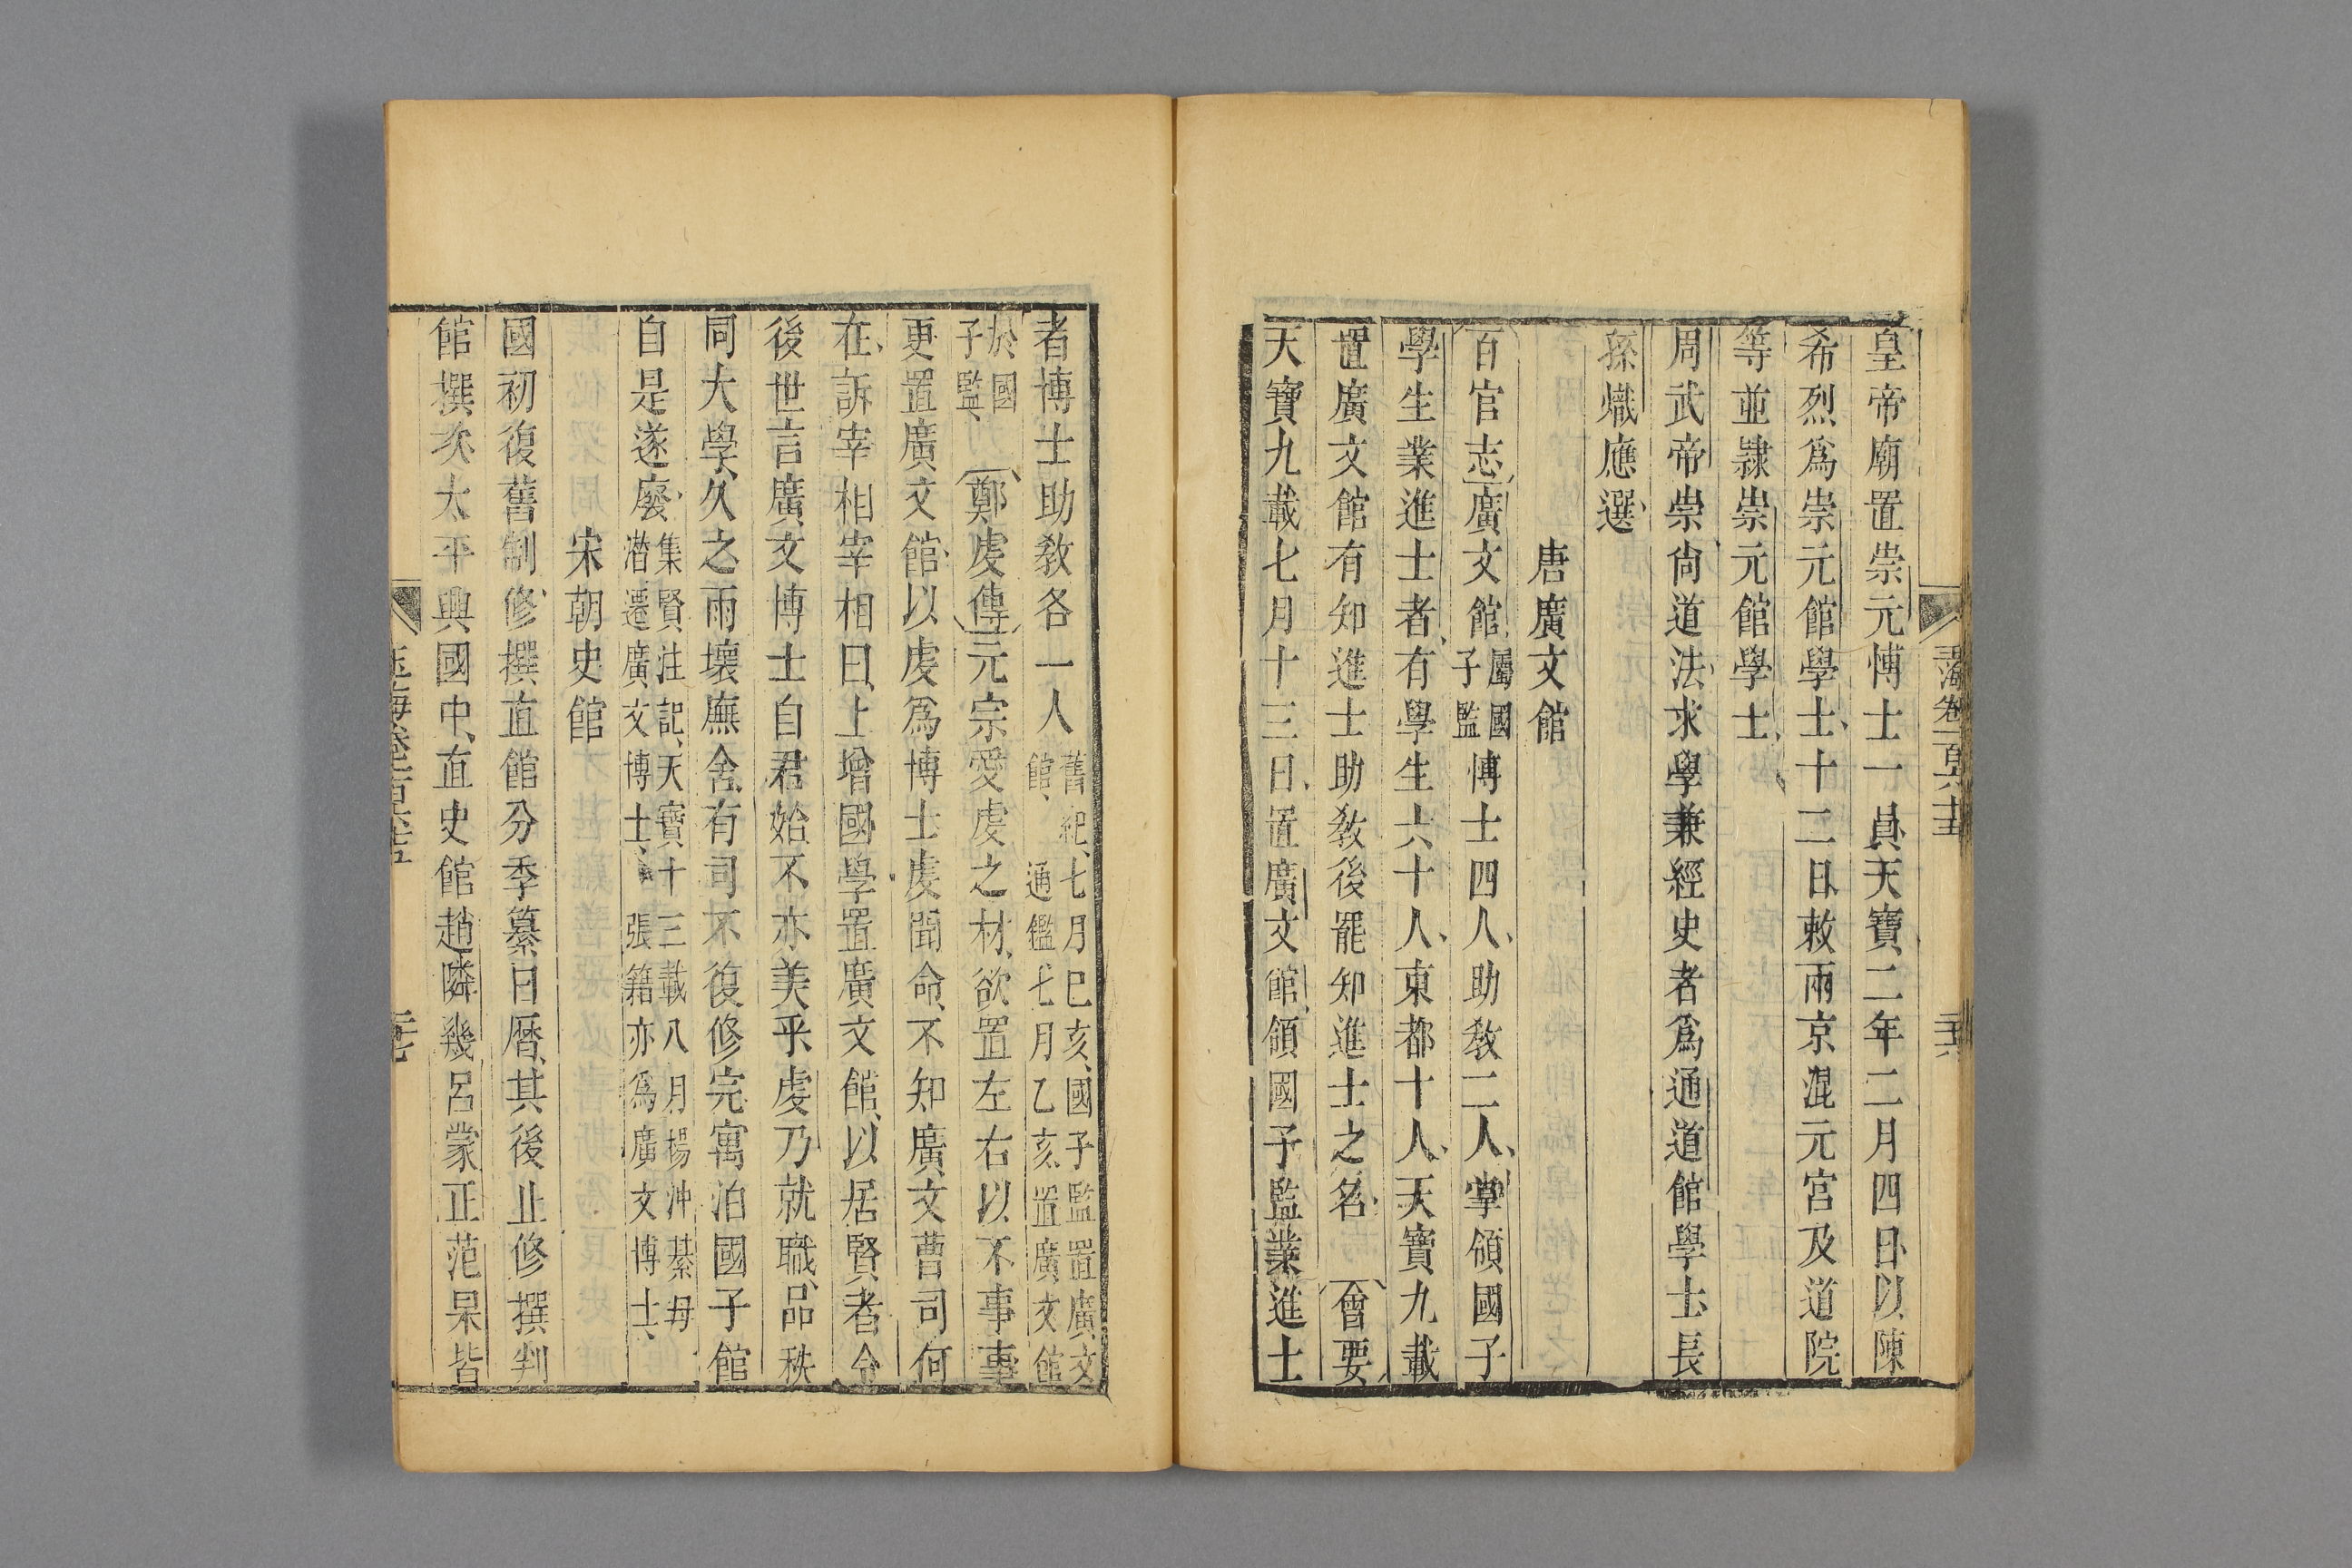 皇帝廟置崇元愽士一員天寶二年二月四日以陳
希烈爲崇元館學士十二日敕兩京混元宮及道院
等並隷崇元館學士
周武帝崇尙道法求學兼經史者爲通道館學士長
孫熾應選
唐廣文館
百官志廣文館屬國子監愽士四人助敎二人掌領國子
學生業進士者有學生六十人東都十人天寶九載
置廣文館有知進士助敎後罷知進士之名 會要
天寶九載七月十三日置廣文館領國子監業進士
者博士助敎各一人舊紀七月已亥國子監置廣文館 通鑑七月乙亥置廣文館
於國子監 鄭虔傳元宗愛虔之材欲置左右以不事事
更置廣文館以虔爲博士虔聞命不知廣文曹司何
在訴宰相宰相曰上增國學置廣文館以居賢者令
後世言廣文博士自君始不亦美乎虔乃就職品秩
同大學久之雨壞廡舍有司不復修完寓泊國子館
自是遂廢集賢注記天寶十三載八月楊沖綦毋潜遷廣文博士 張籍亦爲廣文博士
宋朝史館
國初復舊制修撰直館分季纂日曆其後止修撰判
館撰次太平興國中直史館趙隣幾呂蒙正范杲皆